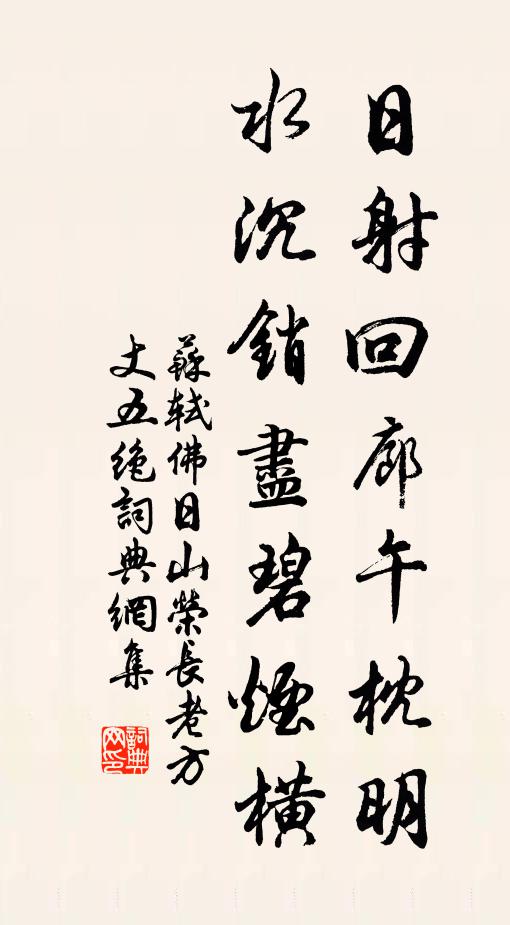 日射回廊午枕明
水沉銷盡碧煙橫
蘇軾佛日山榮長老方
丈五絶詞典網集
詞典
网印